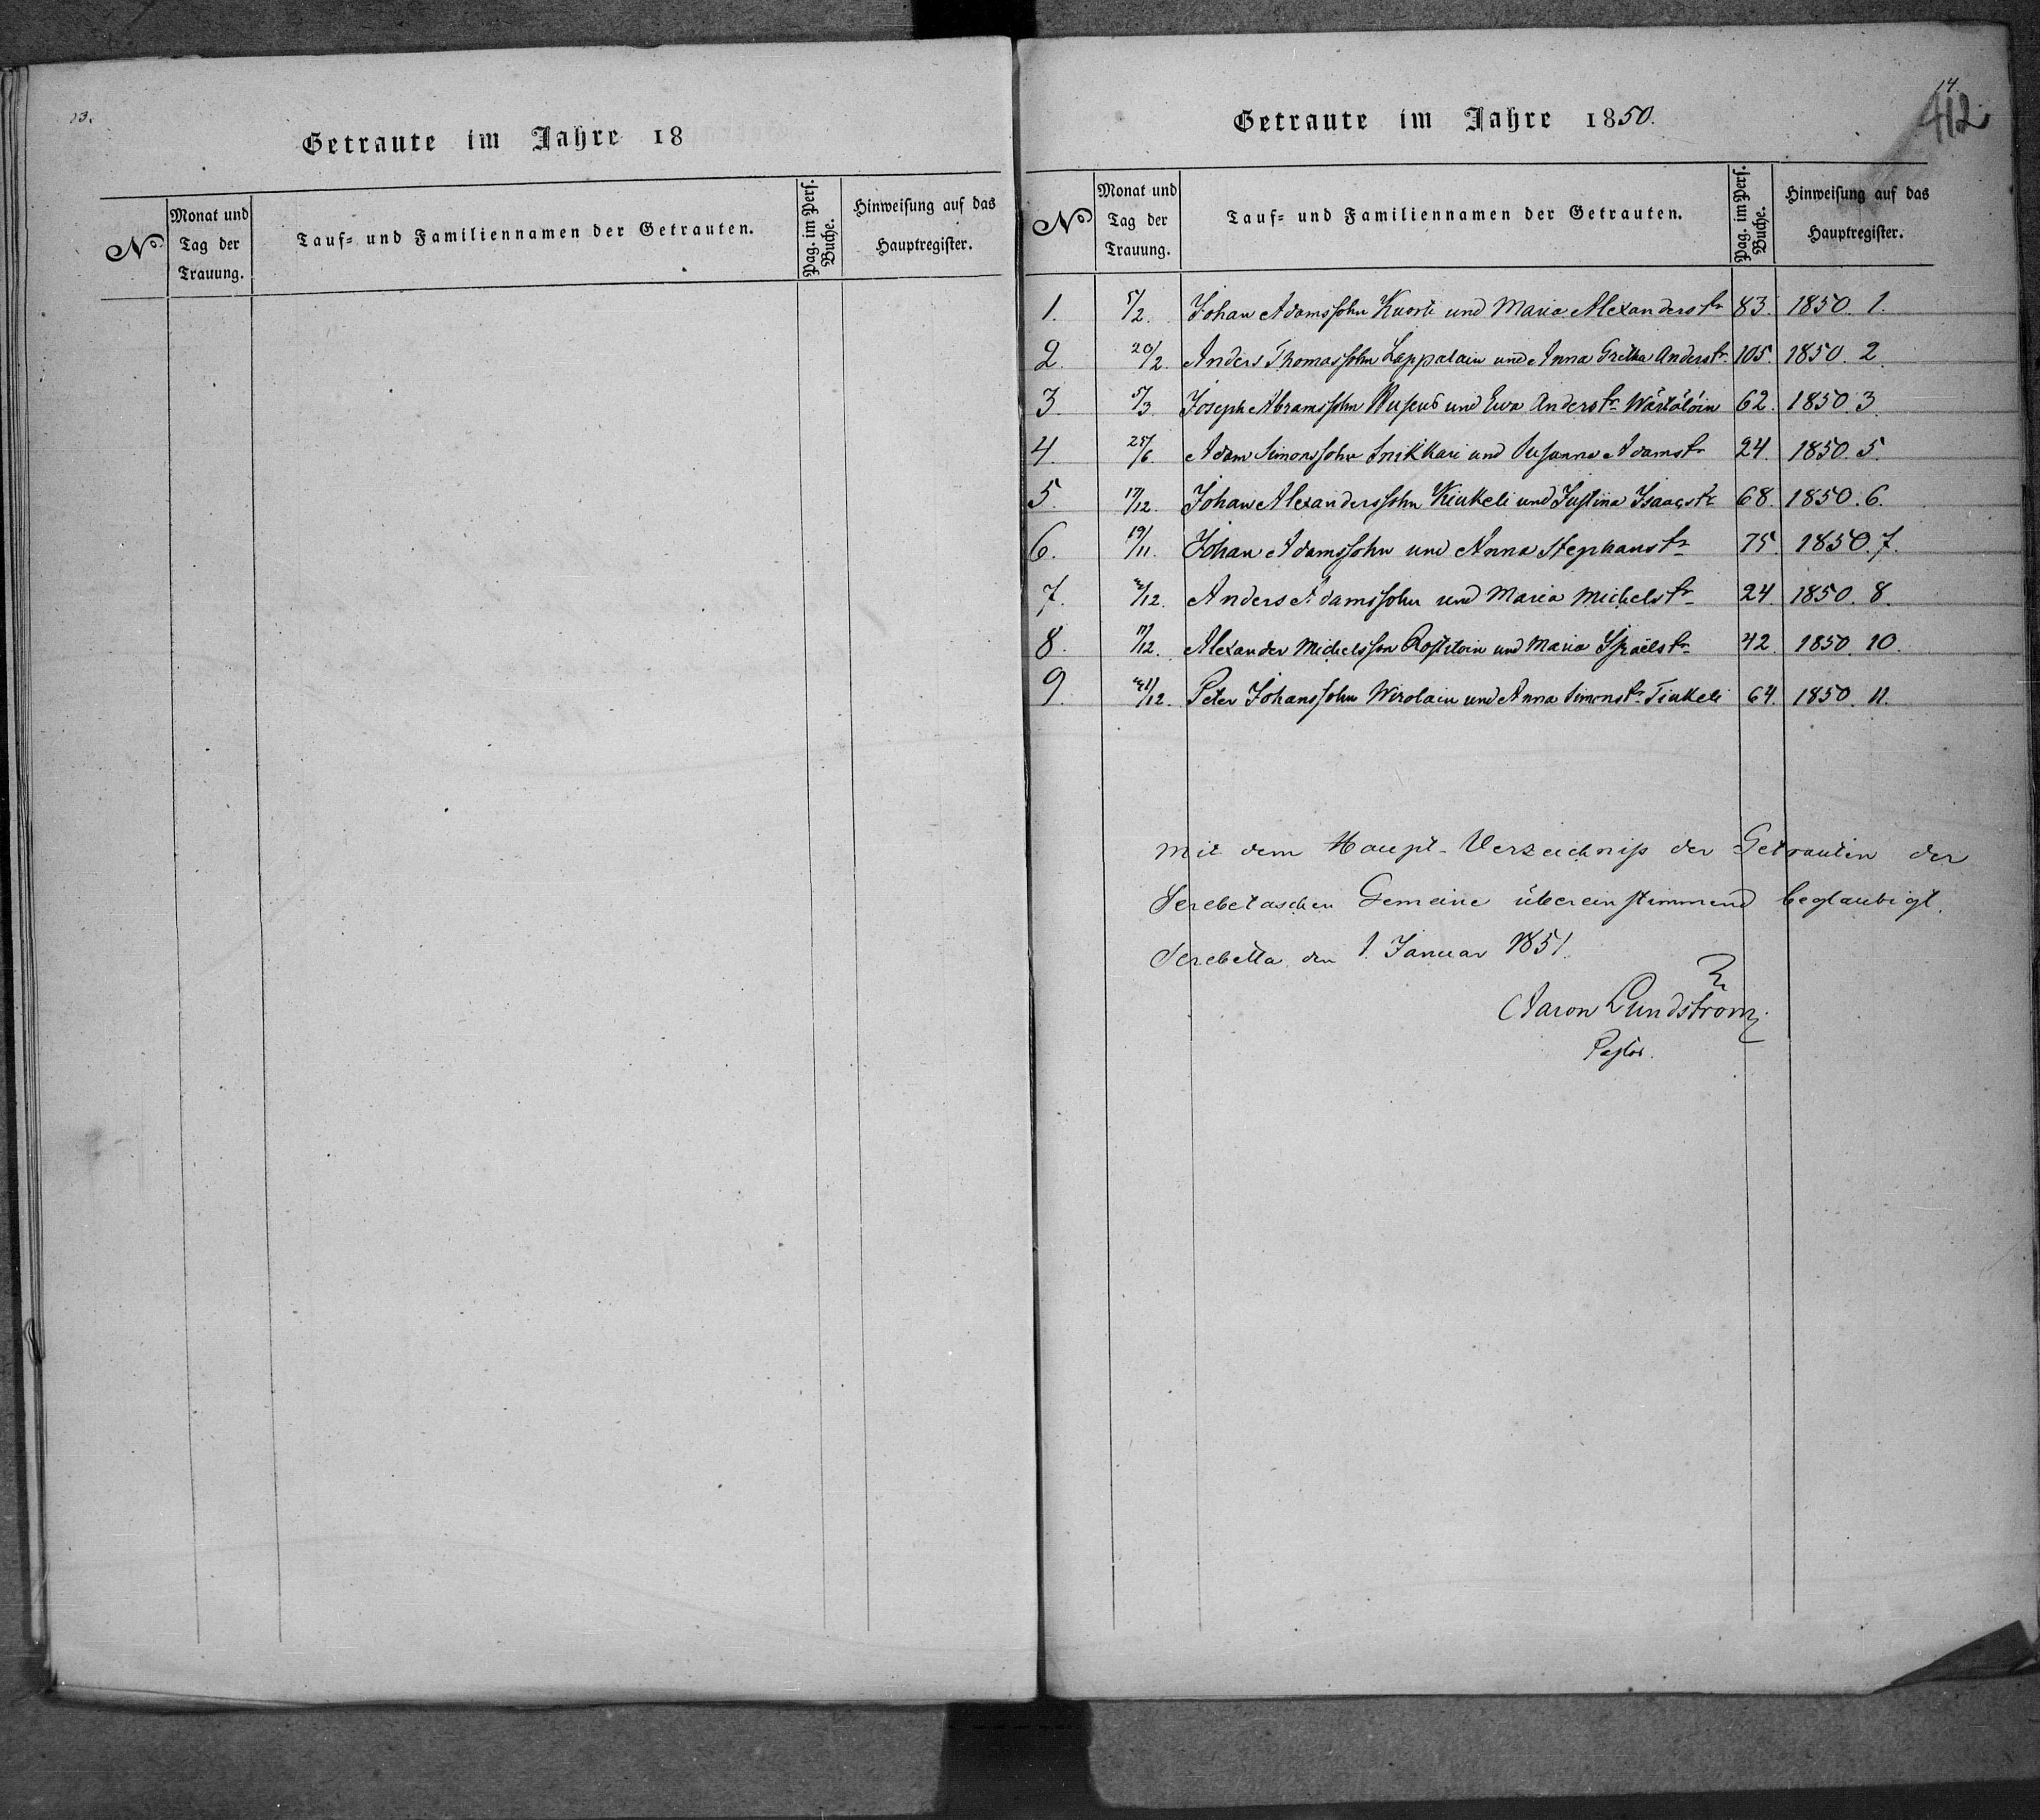 23.
Getraute im Jahre 18
No.
Monat und Tag der Trauung.
Tauf- und Familiennamen der Getrauten.
Pag. im Pers. Buche.
Hinweisung auf das Hauptregister.
14.
412
Getraute im Jahre 1850.
No
Monat und Tag der Trauung.
Tauf- und Familiennamen der Getrauten.
Pag. im Pers. Buche.
Hinweisung auf das Hauptregister.
1. 5/2. Johan Adamssohn Kuorti und Maria Alexanderstr 83. 1850. 1.
2. 20/2. Anders Thomassohn Lappalain und Anna Gretha Anderstr. 105. 1850. 2.
3. 5/3. Joseph Abramssohn und Ewa Anderstr 62. 1850. 3.
4. 25/6. Adam Simonssohn und Susanna Adamstr 24. 1850. 5.
5. 17/12. Johan Alexanderssohn Kiukeli und Justina Isaacstr 68. 1850. 6.
6. 19/11. Johan Adamssohn und Anna Stephanstr 75. 1850. 7.
7. /12. Anders Adamssohn und Maria Michelstr 24. 1850. 8.
8. /12. Alexander Michelsson und Maria Israelstr 42. 1850. 10.
9. /12. Peter Johanssohn Wirolain und Anna Simonstr. 64. 1850. 11.
Mit dem Haupt-Verzeichniss der Getrauten der
Serebetaschen Gemeine übereinstimmend beglaubigt.
Serebetta den 1. Januar 1851.
Aaron Lundström
Pastor.